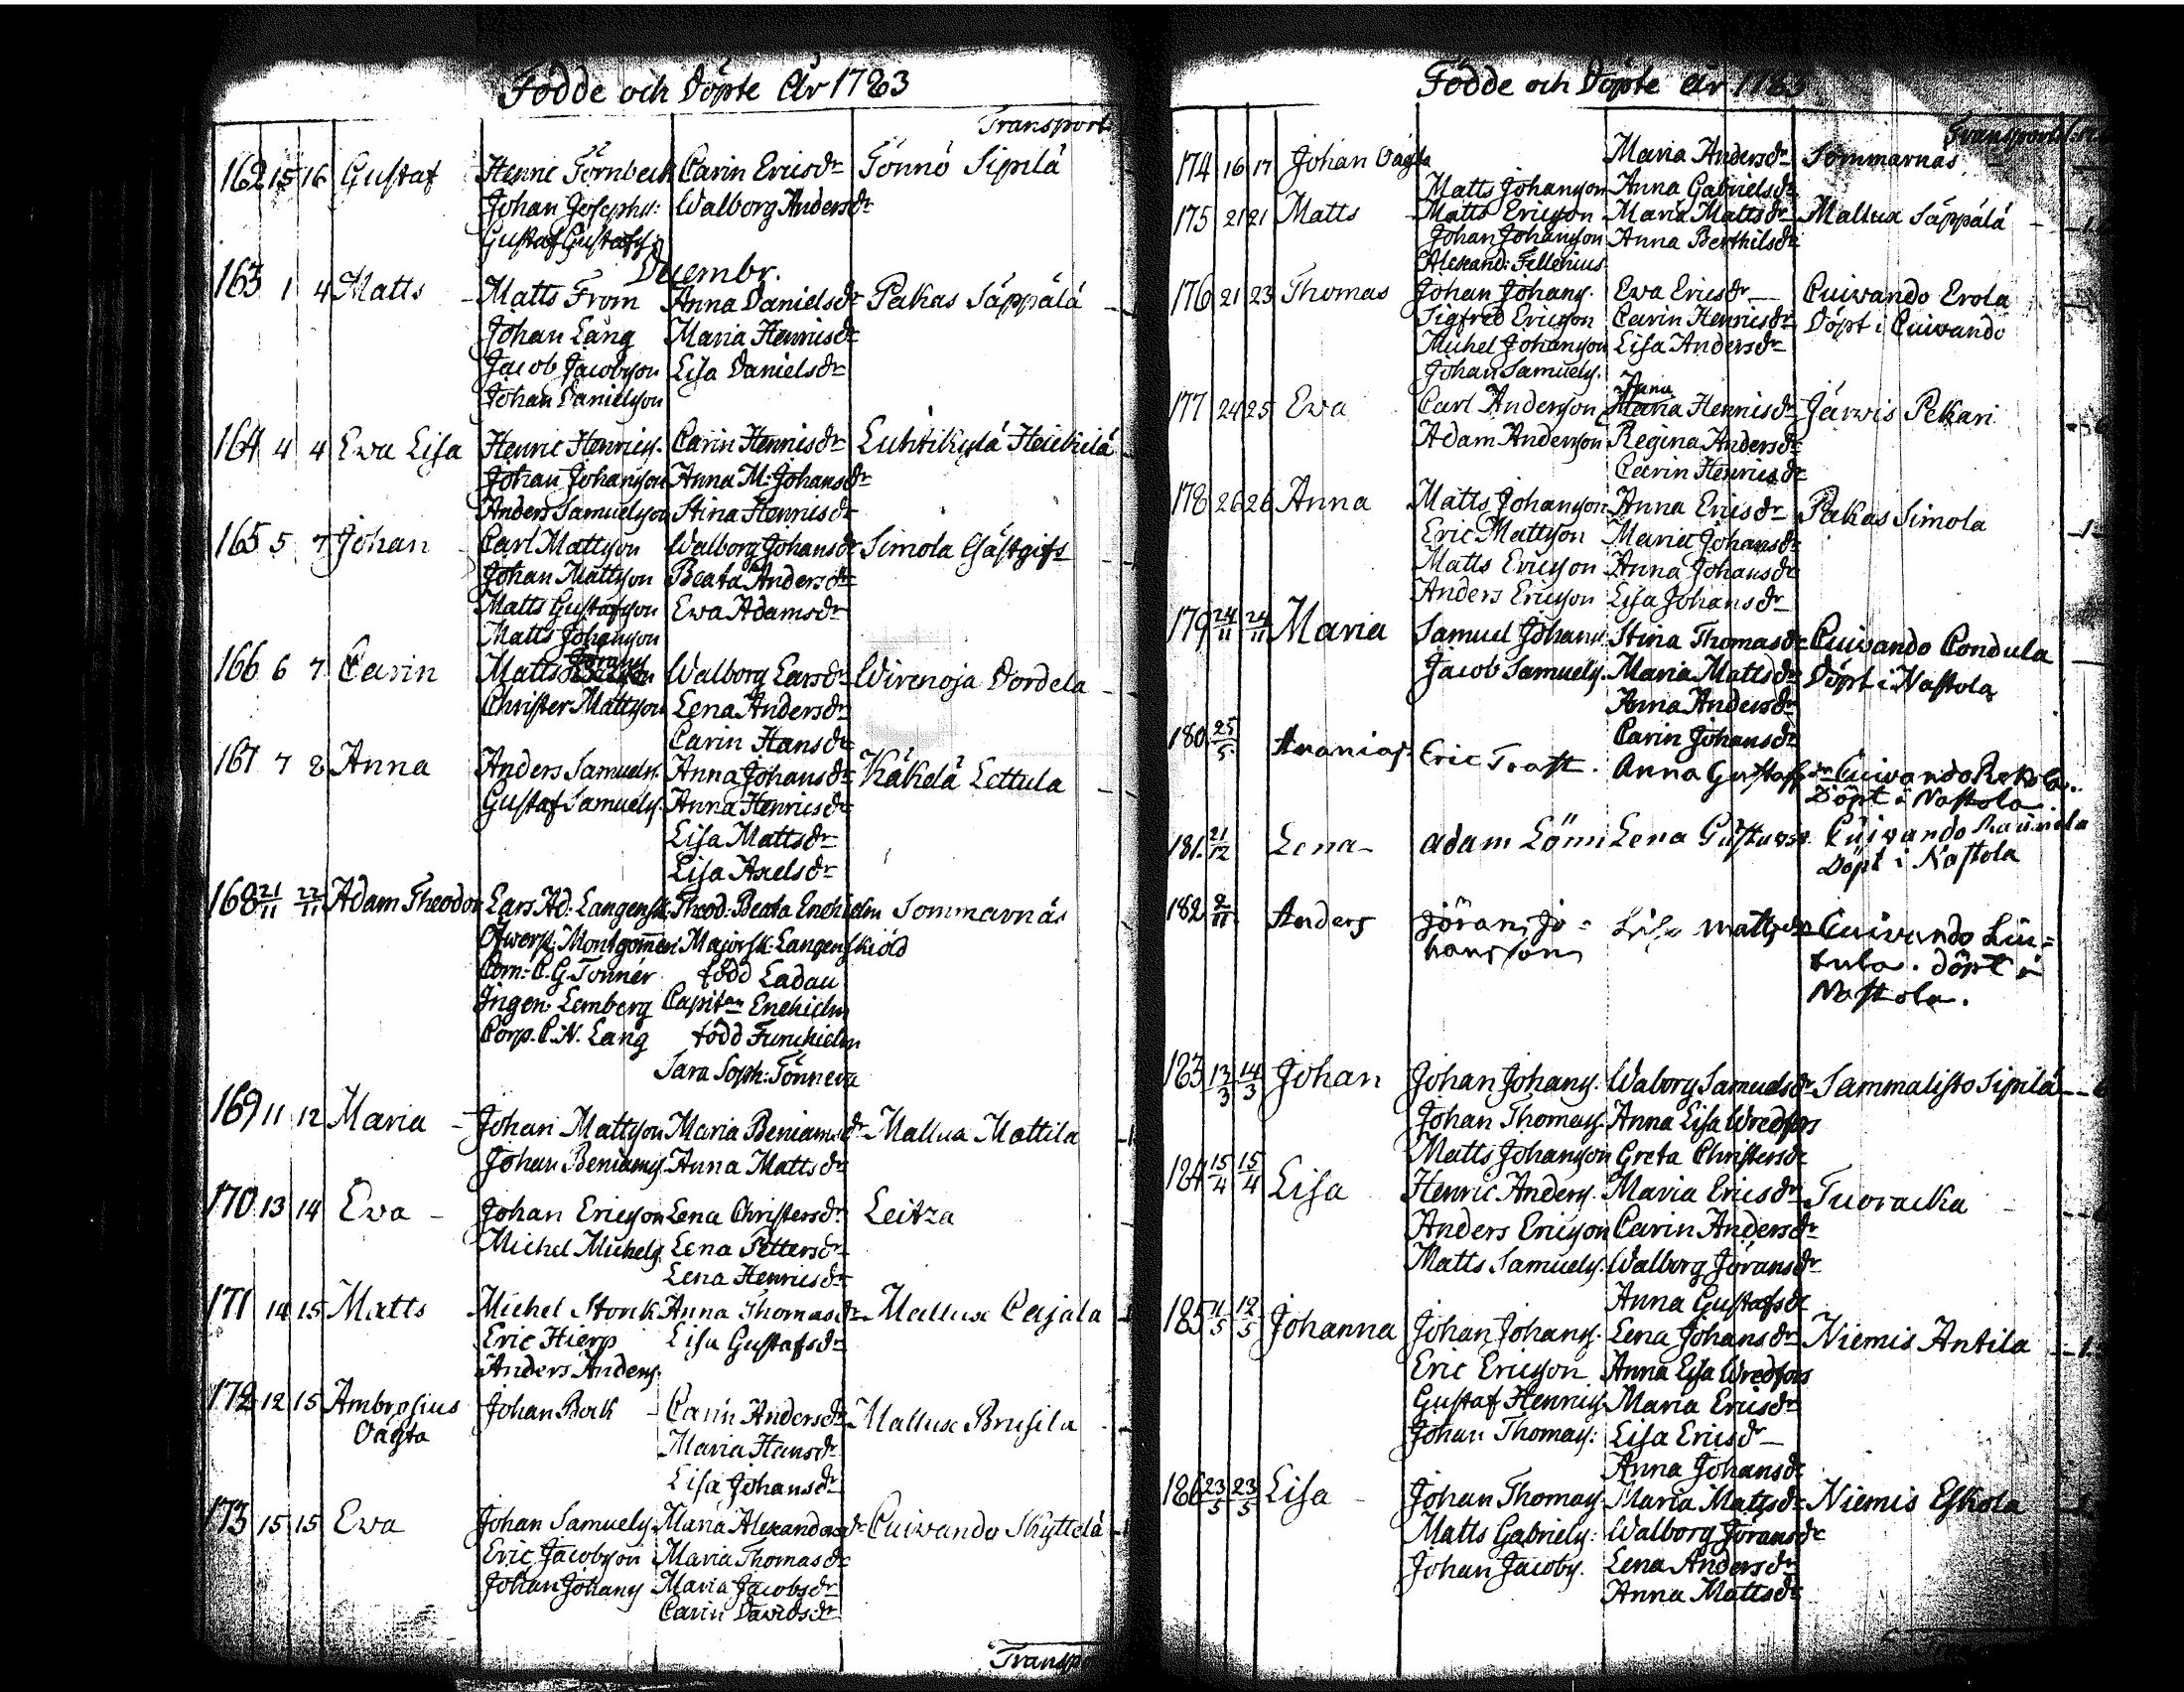 Födde och Döpte År 1783
Transport
162 15 16 Gustaf Henric Törnbeck Carin Ericsdr Tönnö Sipilä
Johan Josephss: Walborg Andersdr
Gustaf Gustafss:
Decembr.
163 1 4 Matts - Matts From Anna Danielsdr Pakas Säppälä
Johan Lång Maria Henricsdr
Jacob Jacobsson Lisa Danielsdr
Johan Danielsson
164 4 4 Ewa Lisa Henric Henricss. Carin Henricsdr Luhtikylä Heickilä
Johan Johansson Anna M: Johansdr
Anders Samuelsson Stina Henricsdr
165 5 7 Johan - Carl Mattsson Walborg Johansdr Simola Gästgifs
Johan Mattsson Beata Andersdr
Matts Gustafsson Ewa Adamsdr
Matts Johansson
166 6 7 Carin Matts Görans Walborg Larsdr Wirenoja Dordela
Christer Mattsson Lena Andersdr
Carin Hansdr
167 7 8 Anna Anders Samuelss. Anna Johansdr Käkelä Lettula
Gustaf Samuelss. Anna Henricsdr
Lisa Mattsdr
Lisa Axelsdr
168 21/11 22/11 Adam Theodor Lars Ad: Langensk: Theod: Beata Enehielm Sommarnäs
Öfwerst: Montgommeri Majorsk: Langenskiöld
Corn: C. G. Tonnér född Ladau
Ingen: Lemberg Capitan Enehielm
Corp. C. N. Lang född Furuhielm
Sara Soph: Tönnera
169 11 12 Maria - Johan Mattsson Maria Beniamsdr Mallua Mattila
Johan Beniamss. Anna Mattsdr
170 13 14 Ewa - Johan Ericsson Lena Christersdr Leitza
Michel Michelss. Lena Pettersdr
Lena Henricsdr
171 14 15 Matts Michel Stork Anna Thomasdr Mallua Cajala
Eric Hierp Lisa Gustafsdr
Anders Anderss.
172 12 15 Ambrosius Johan Bock - Carin Andersdr Mallua Brusila
Oägta Maria Hansdr
Lisa Johansdr
173 15 15 Ewa Johan Samuelss. Maria Alexandersdr Cuiwando Skyttelä
Eric Jacobsson Maria Thomasdr
Johan Johanss Maria Jacobsdr
Carin Davidsdr
Transp
Födde och Döpte År 1783
Transport
174 16 17 Johan Oägta Maria Andersdr Sommarnäs
Matts Johansson Anna Gabrielsdr
175 21 21 Matts - Matts Ericsson Maria Mattsdr Mallua Säppälä
Johan Johansson Anna Berthilsdr
Alexand: Fellenius
176 21 23 Thomas Johan Johanss. Ewa Ericsdr Cuiwando Erola
Sigfred Ericsson Carin Henricsdr Döpt i Cuiwando
Michel Johansson Lisa Andersdr
Johan Samuelss.
Anna
177 24 25 Ewa Carl Andersson Maria Henricsdr Järwis Pekari
Adam Andersson Regina Andersdr
Carin Henricsdr
178 26 26 Anna Matts Johansson Anna Ericsdr Pakas Simola
Eric Mattsson Maria Johansdr
Matts Ericsson Anna Johansdr
Anders Ericsson Lisa Johansdr
179 24/11 24/11 Maria Samuel Johanss. Stina Thomasdr Cuiwando Condula
Jacob Samuelss. Maria Mattsdr Döpt i Nastola
Anna Andersdr
Carin Johansdr
180 25/5 Ananias. Eric Trast. Anna Gustafsdr Cuiwando Rekola.
Döpt i Nastola.
181. 21/12 Lena - Adam Lönn Lena Gustavsd. Cuiwando Raunela
Döpt i Nastola
182 2/11 Anders Jöran Jo= Lisa Mattsdr Cuiwando Lin=
hansson tula. döpt i
Nastola.
183 13/3 14/3 Johan Johan Johanss. Waborg Samuelsdr Sammalisto Sipilä
Johan Thomass. Anna Lisa Wredfors
Matts Johansson Greta Christersdr
184 15/4 15/4 Lisa Henric Anderss. Maria Ericsdr Tuoracka
Anders Ericsson Carin Andersdr
Matts Samuelss. Walborg Jöransdr
Anna Gustafsdr
185 11/5 12/5 Johanna Johan Johanss. Lena Johansdr Niemis Antila
Eric Ericsson Anna Lisa Wredfors
Gustaf Henricss. Maria Ericsdr
Johan Thomass: Lisa Ericsdr
Anna Johansdr
186 23/5 23/5 Lisa - Johan Thomass Maria Mattsdr Niemis Eskola
Matts Gabrielss: Walborg Jöransdr
Johan Jacobss. Lena Andersdr
Anna Mattsdr